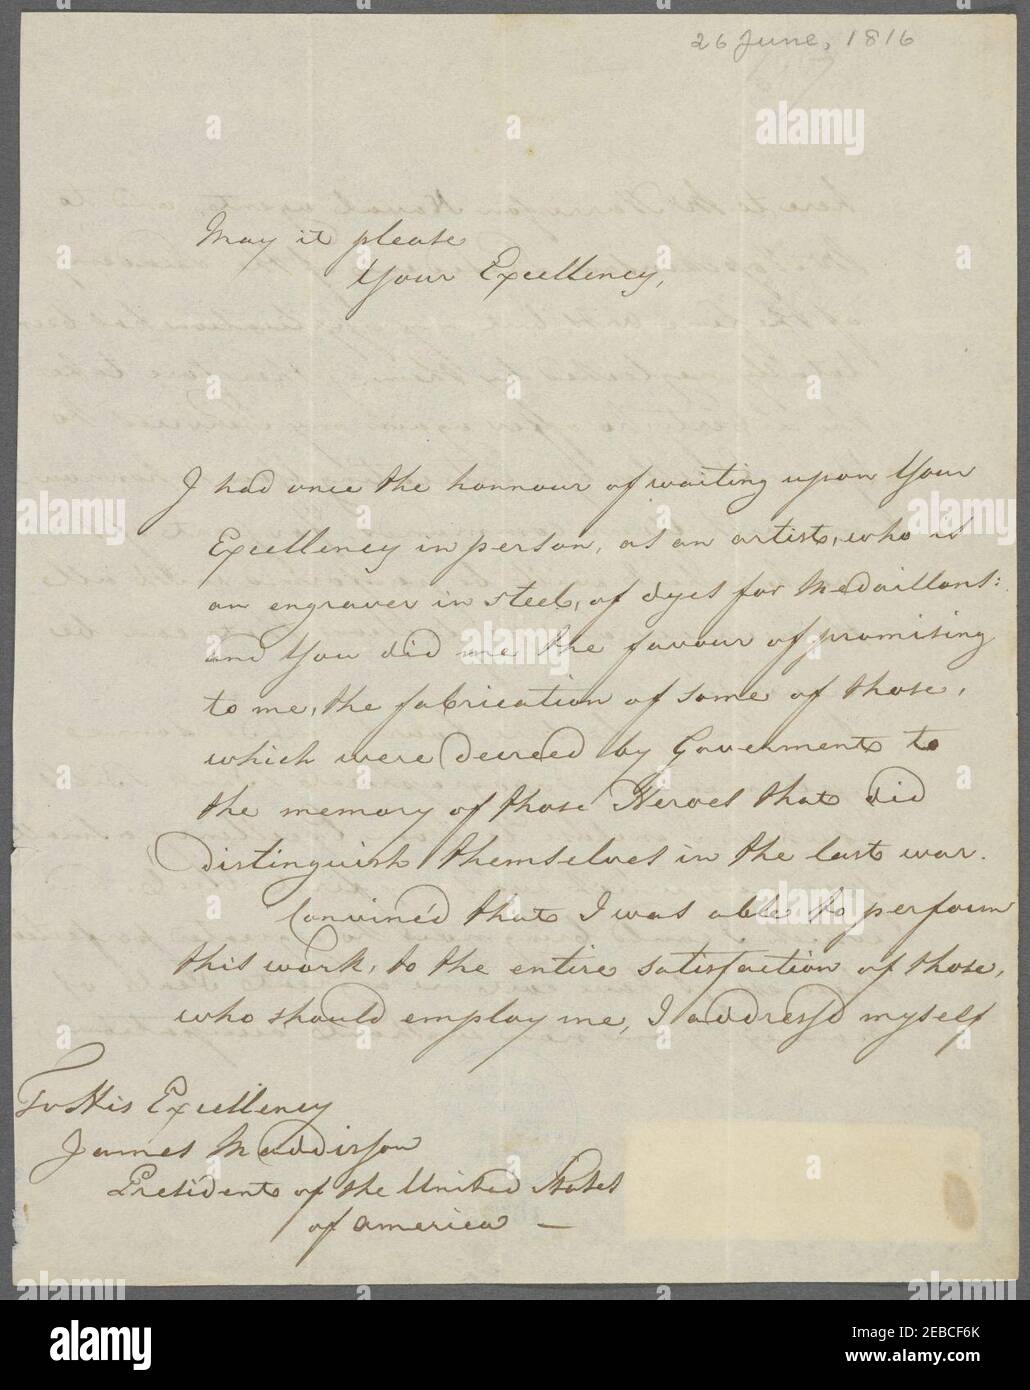 26 June, 1816
May it please
Your Excellency,
I had once the honnour of waiting upon Your
Excellency in person, as an artist, who is
an engraver in steel, of dyes for Medaillons:
and You did me the favour of promising
to me, the fabrication of some of those,
which were decreed by Government to
the memory of those Heroes that did
distinguish themselves in the last war.
Convinc'd that I was able to perform
this work, to the entire satisfaction of those,
who should employ me, I address'd myself
To His Excellency
James Maddisson
President of the United States
of america —
alamy
Image ID: 2EBCF6K
www.alamy.com